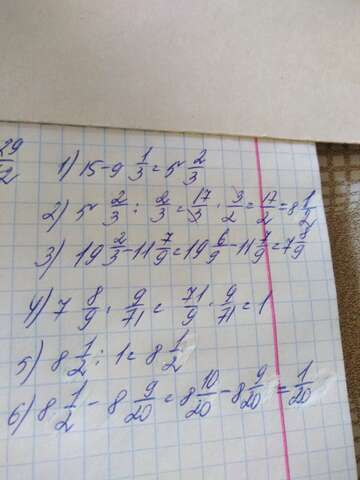 29
12
1) 15-9 1/3 = 5 2/3
2) 5 2/3 : 2/3 = 17/3 · 3/2 = 17/2 = 8 1/2
3) 19 2/3 - 11 7/9 = 19 6/9 - 11 7/9 = 7 8/9
4) 7 8/9 · 9/71 = 71/9 · 9/71 = 1
5) 8 1/2 : 1 = 8 1/2
6) 8 1/2 - 8 9/20 = 8 10/20 - 8 9/20 = 1/20